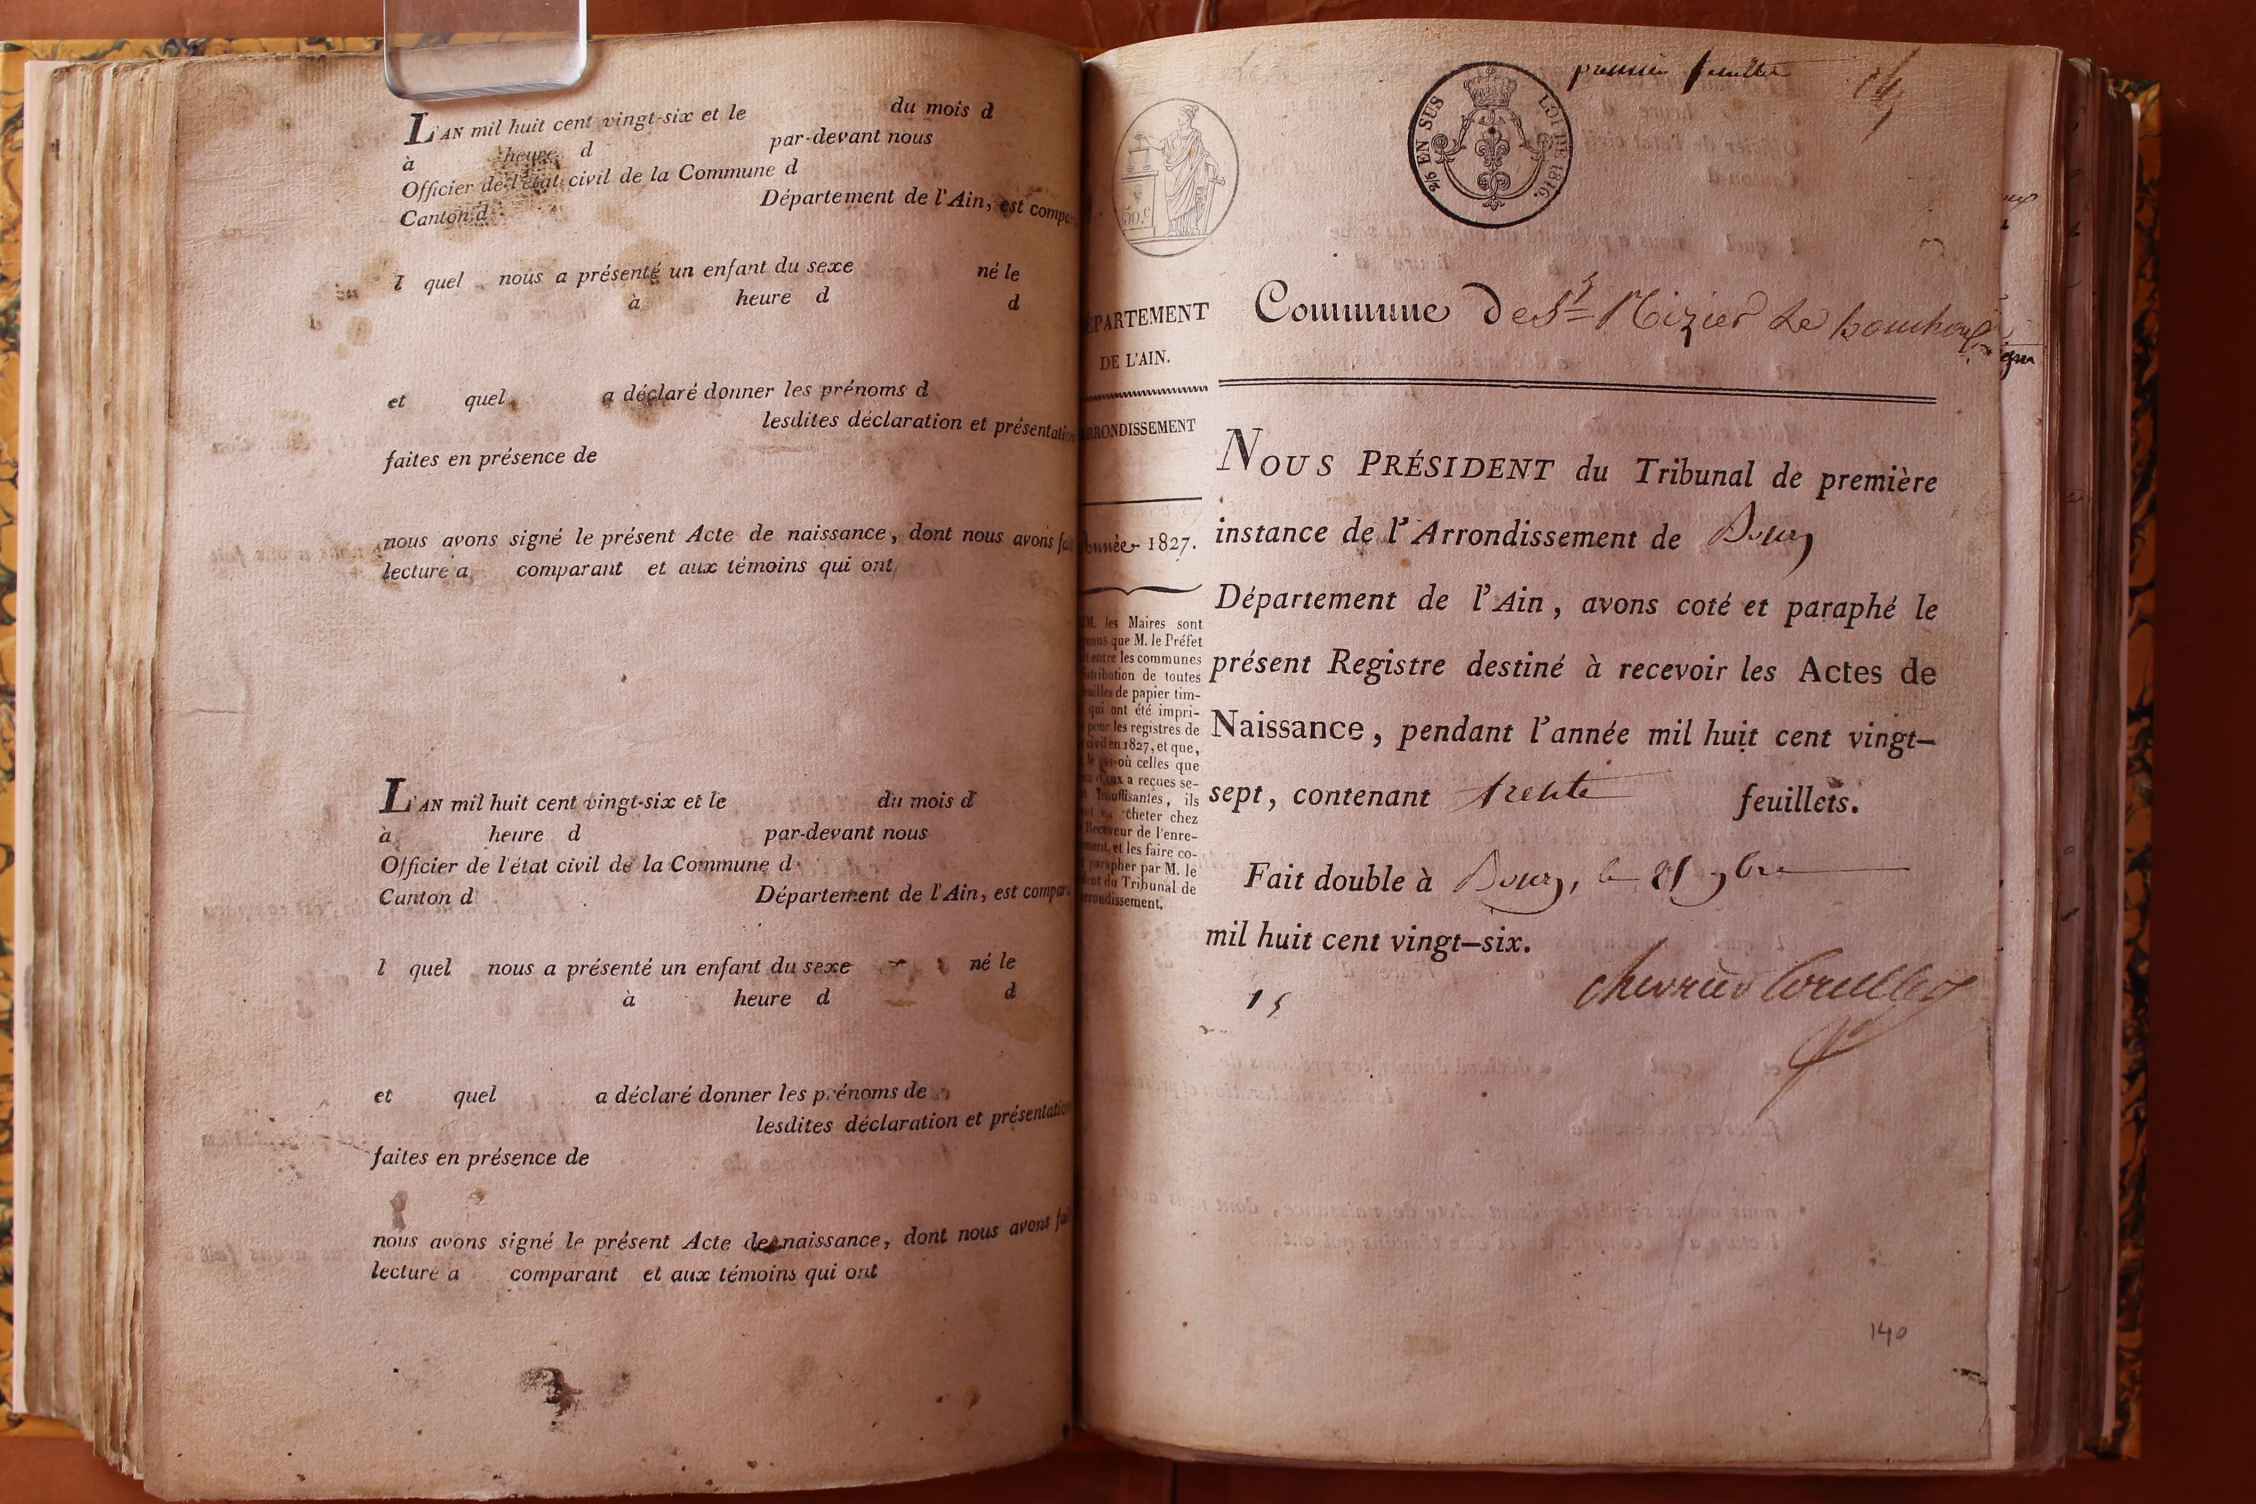 L'AN mil huit cent vingt-six et le du mois d
à heure d par-devant nous
Officier de l'état civil de la Commune d
Canton d Département de l'Ain, est compa
l quel nous a présenté un enfant du sexe né le
à heure d d
et quel a déclaré donner les prénoms d
lesdites déclaration et présentation
faites en présence de
nous avons signé le présent Acte de naissance, dont nous avons fai
lecture a comparant et aux témoins qui ont
L'AN mil huit cent vingt-six et le du mois d
à heure d par-devant nous
Officier de l'état civil de la Commune d
Canton d Département de l'Ain, est compar
l quel nous a présenté un enfant du sexe né le
à heure d d
et quel a déclaré donner les prénoms de
lesdites déclaration et présentation
faites en présence de
nous avons signé le présent Acte de naissance, dont nous avons fai
lecture a comparant et aux témoins qui ont
premier feuillet
2/5 EN SUS LOI DE 1816.
50.c
ÉPARTEMENT
DE L'AIN.
RRONDISSEMENT
Année 1827.
M. les Maires sont
que M. le Préfet
entre les communes
tribution de toutes
uilles de papier tim-
qui ont été impri-
pour les registres de
civil en 1827, et que,
où celles que
a reçues se-
insuffisantes, ils
cheter chez
Receveur de l'enre-
ment, et les faire co-
parapher par M. le
ent du Tribunal de
rrondissement.
Commune de St Nizier Le bouchoux
NOUS PRÉSIDENT du Tribunal de première
instance de l'Arrondissement de Bourg
Département de l'Ain, avons coté et paraphé le
présent Registre destiné à recevoir les Actes de
Naissance, pendant l'année mil huit cent vingt-
sept, contenant trente feuillets.
Fait double à Bourg, le 21 9bre
mil huit cent vingt-six.
15
140